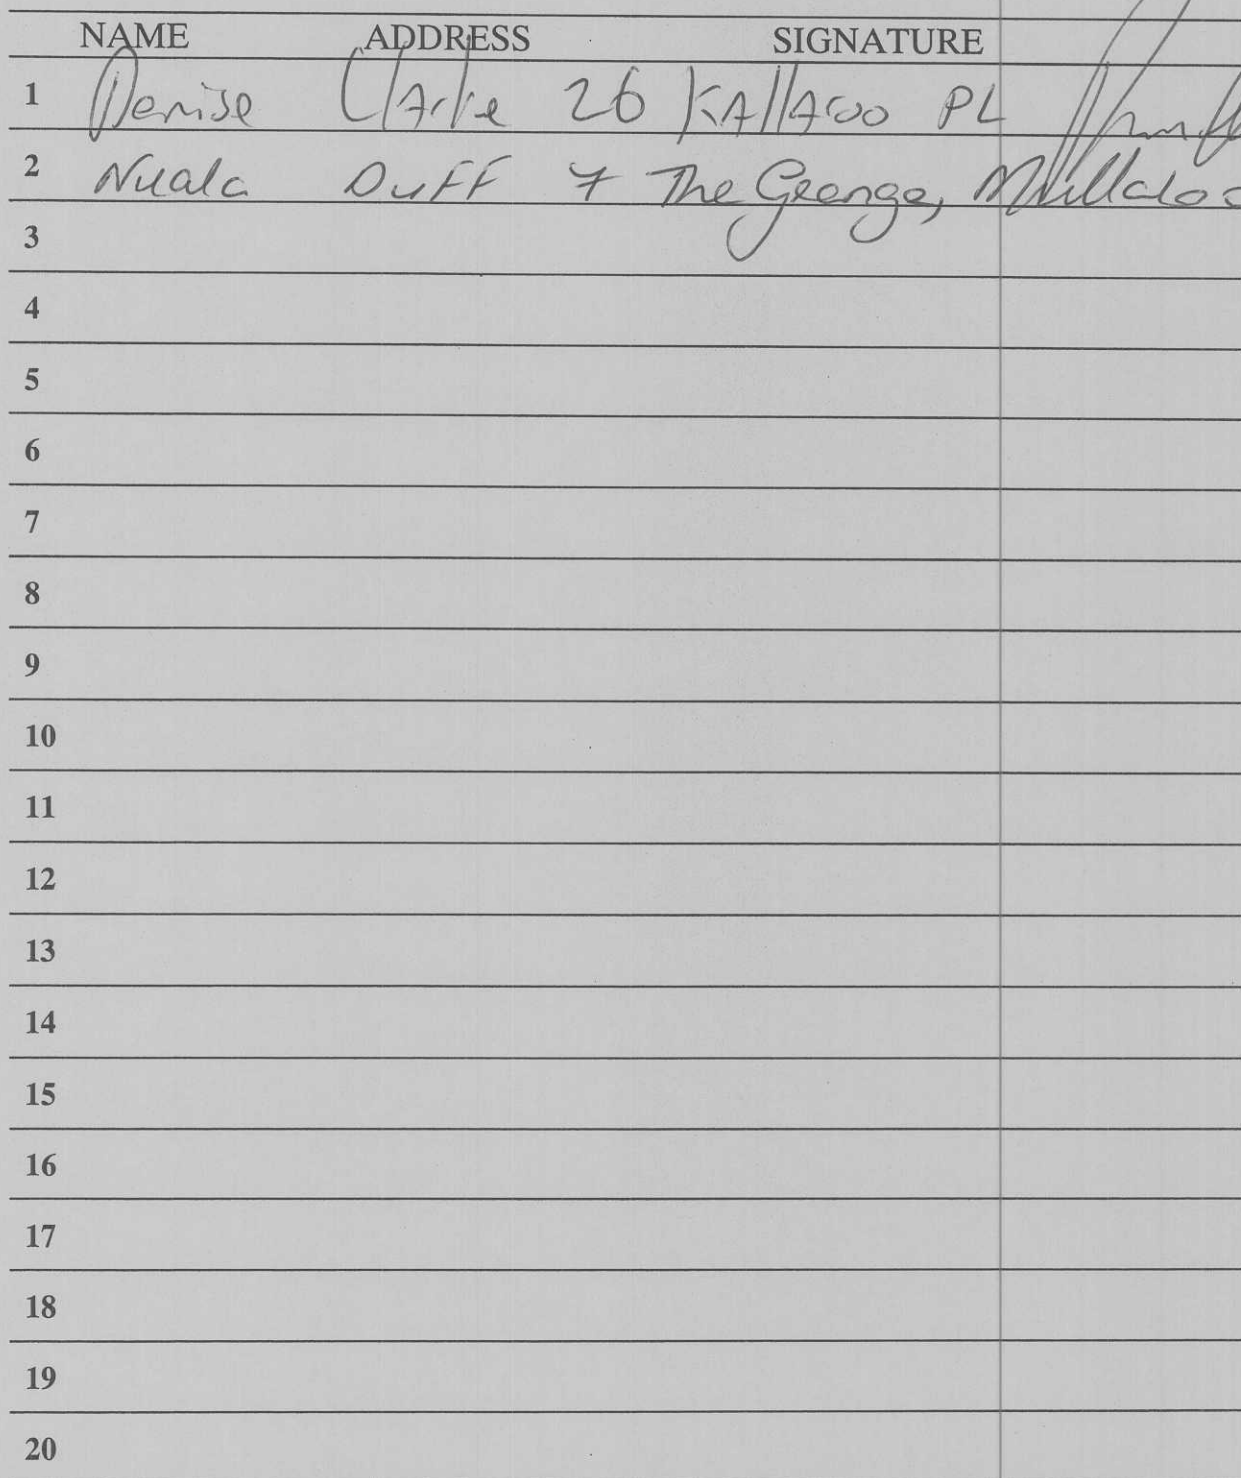 NAME ADDRESS SIGNATURE
1 Denise Clarke 26 KAllAroo PL
2 Nuala Duff 7 The Grange, Mullaloo
3
4
5
6
7
8
9
10
11
12
13
14
15
16
17
18
19
20